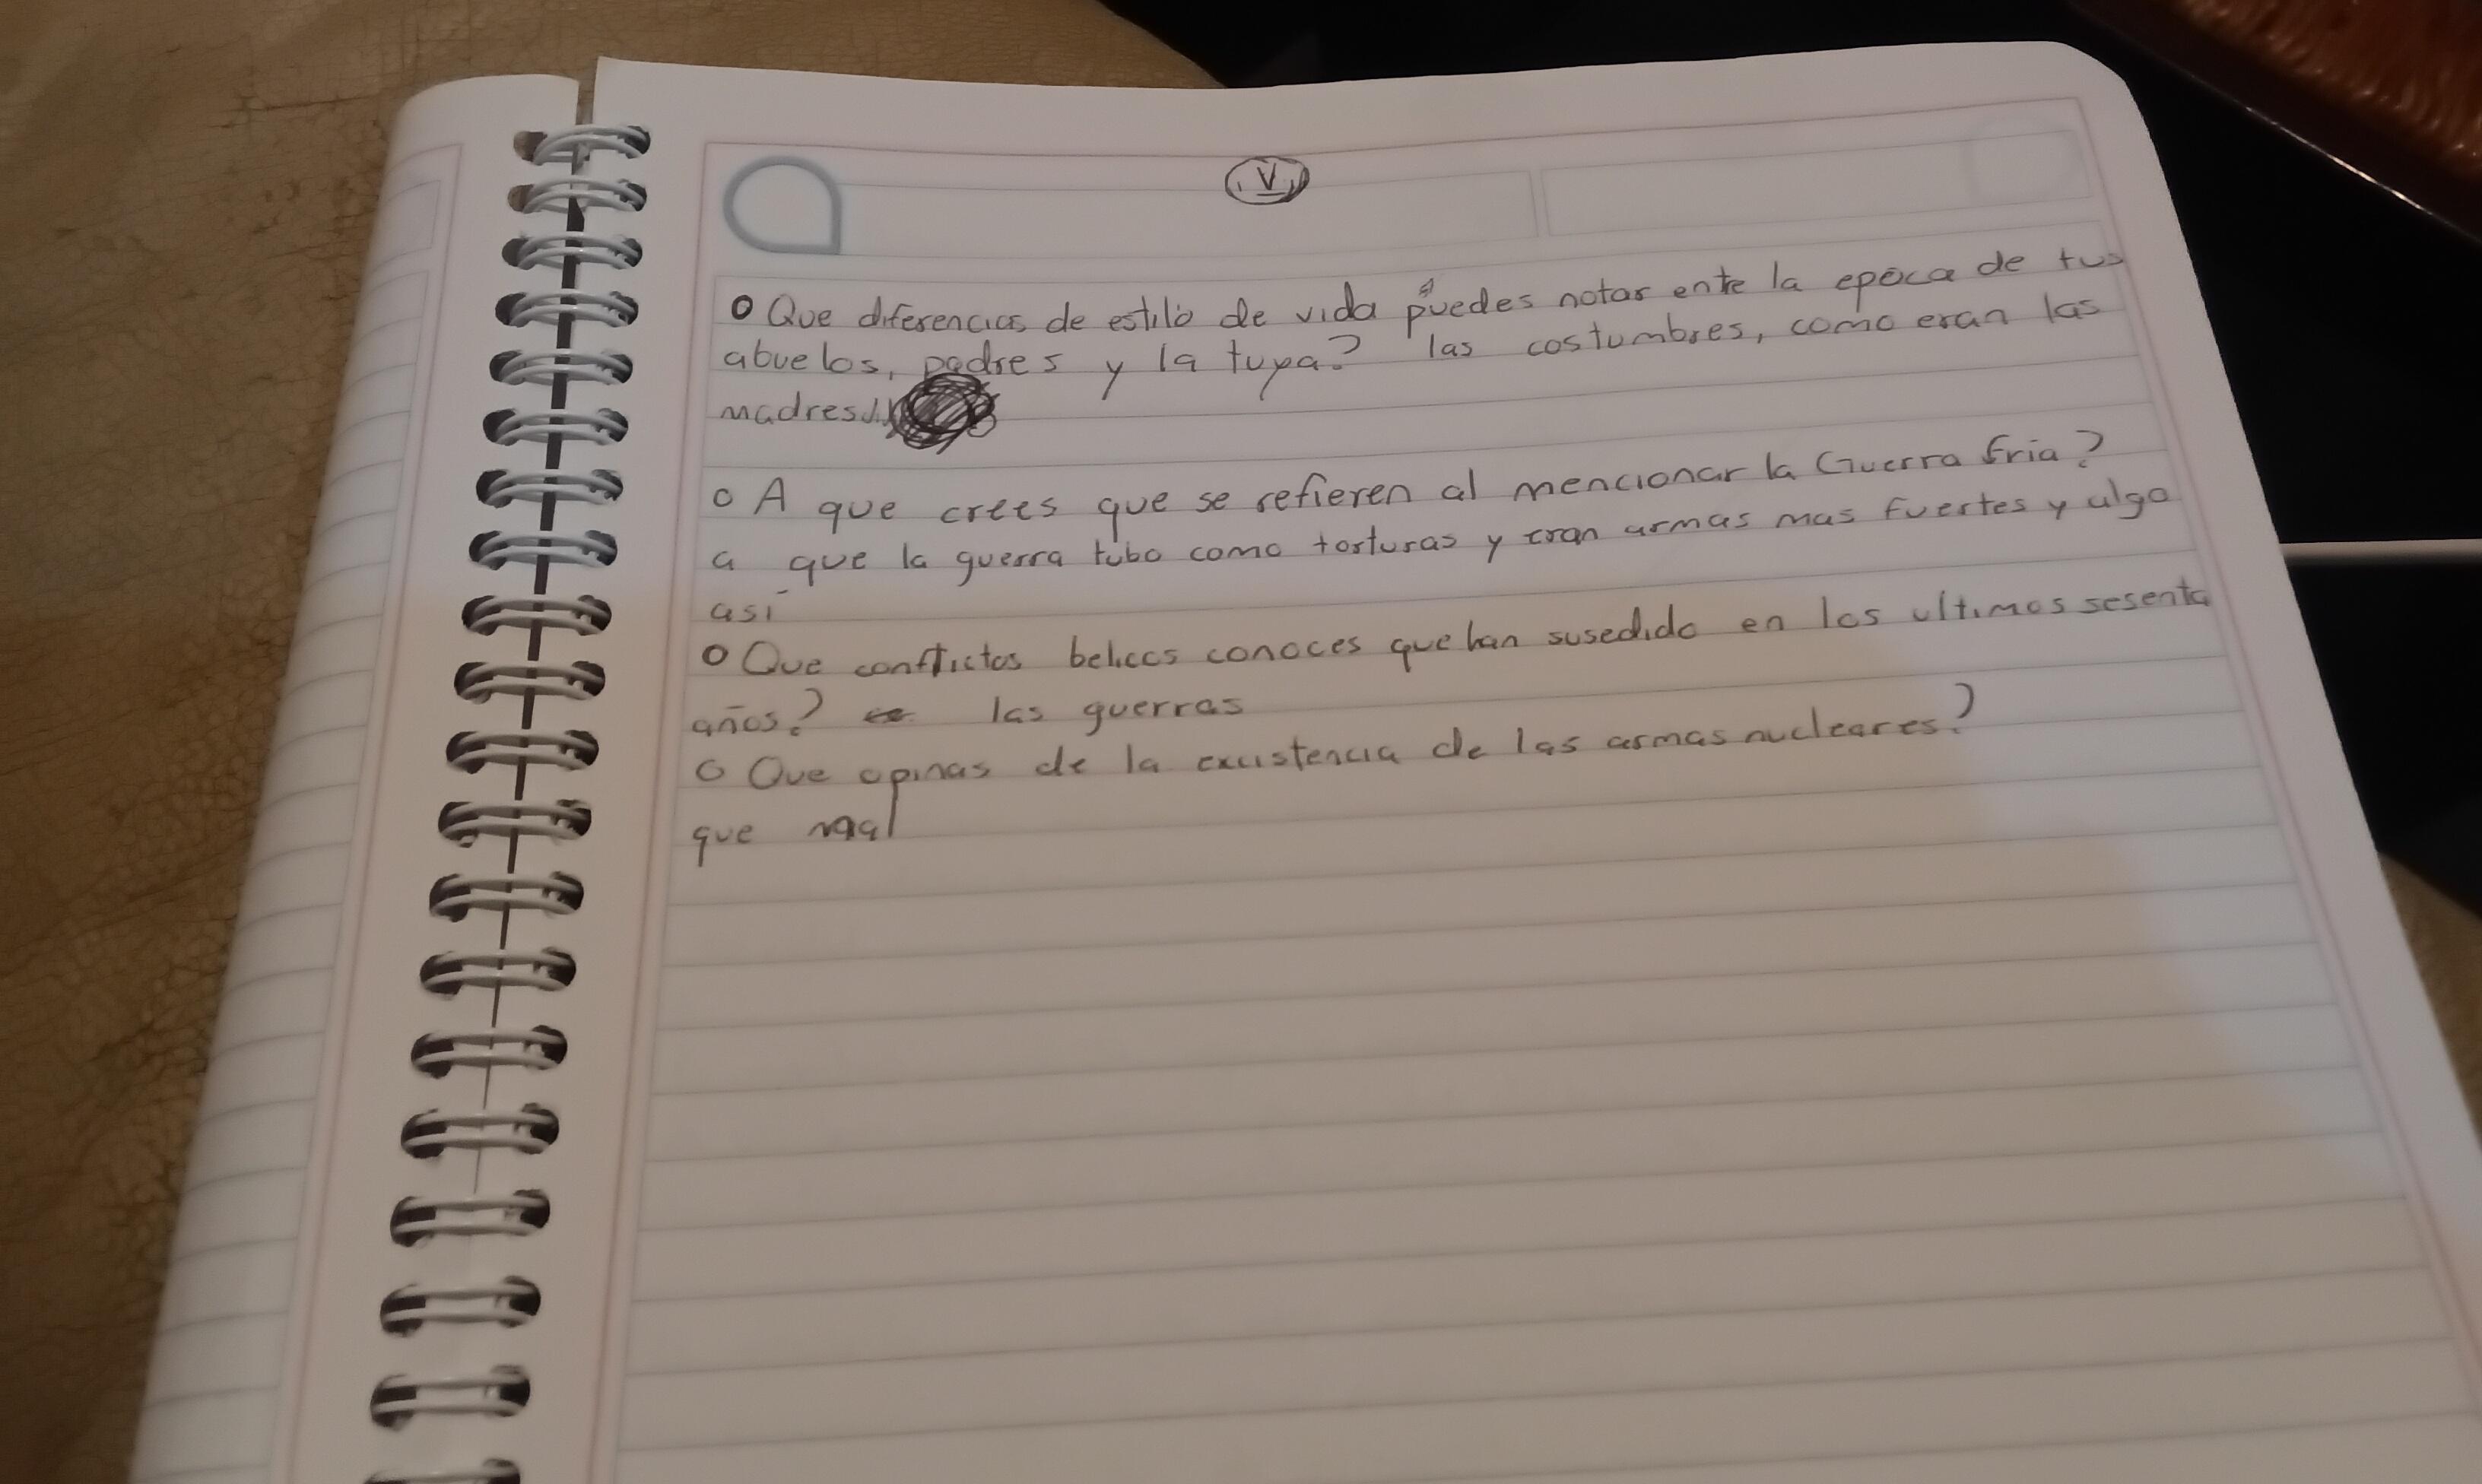 V
Que diferencias de estilo de vida puedes notar ente la epoca de tus
abuelos, padres y la tuya? las costumbres, como eran las
madres
A que crees que se refieren al mencionar la Guerra fria?
a que la guerra tubo como torturas y eran armas mas fuertes y algo
así
Que conflictos belicos conoces que han susedido en los ultimos sesenta
años? las guerras
Que opinas de la excistencia de las armas nucleares?
que mal